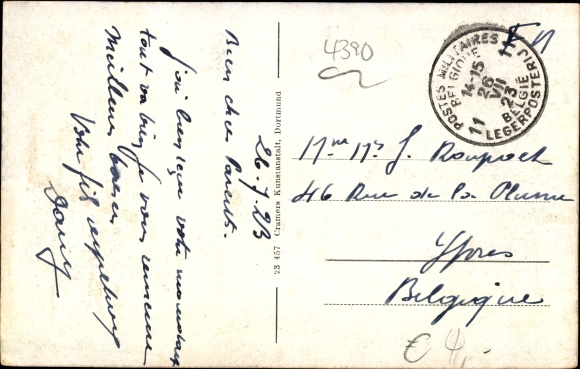 26.7.23
Bien cher Parents.
j'ai bien reçu votre mandat
tout va bien je vous remercie
Meilleurs baiser
Votre fils
23 457 Cramers Kunstanstalt, Dortmund
4390
POSTES MILITAIRES
BELGIQUE
14-15
26
VII
23
BELGIË
LEGERPOSTERIJ
11
11
Mme Mr J.
46 Rue de la Plume
Ypres
Belgique
€ 4,-